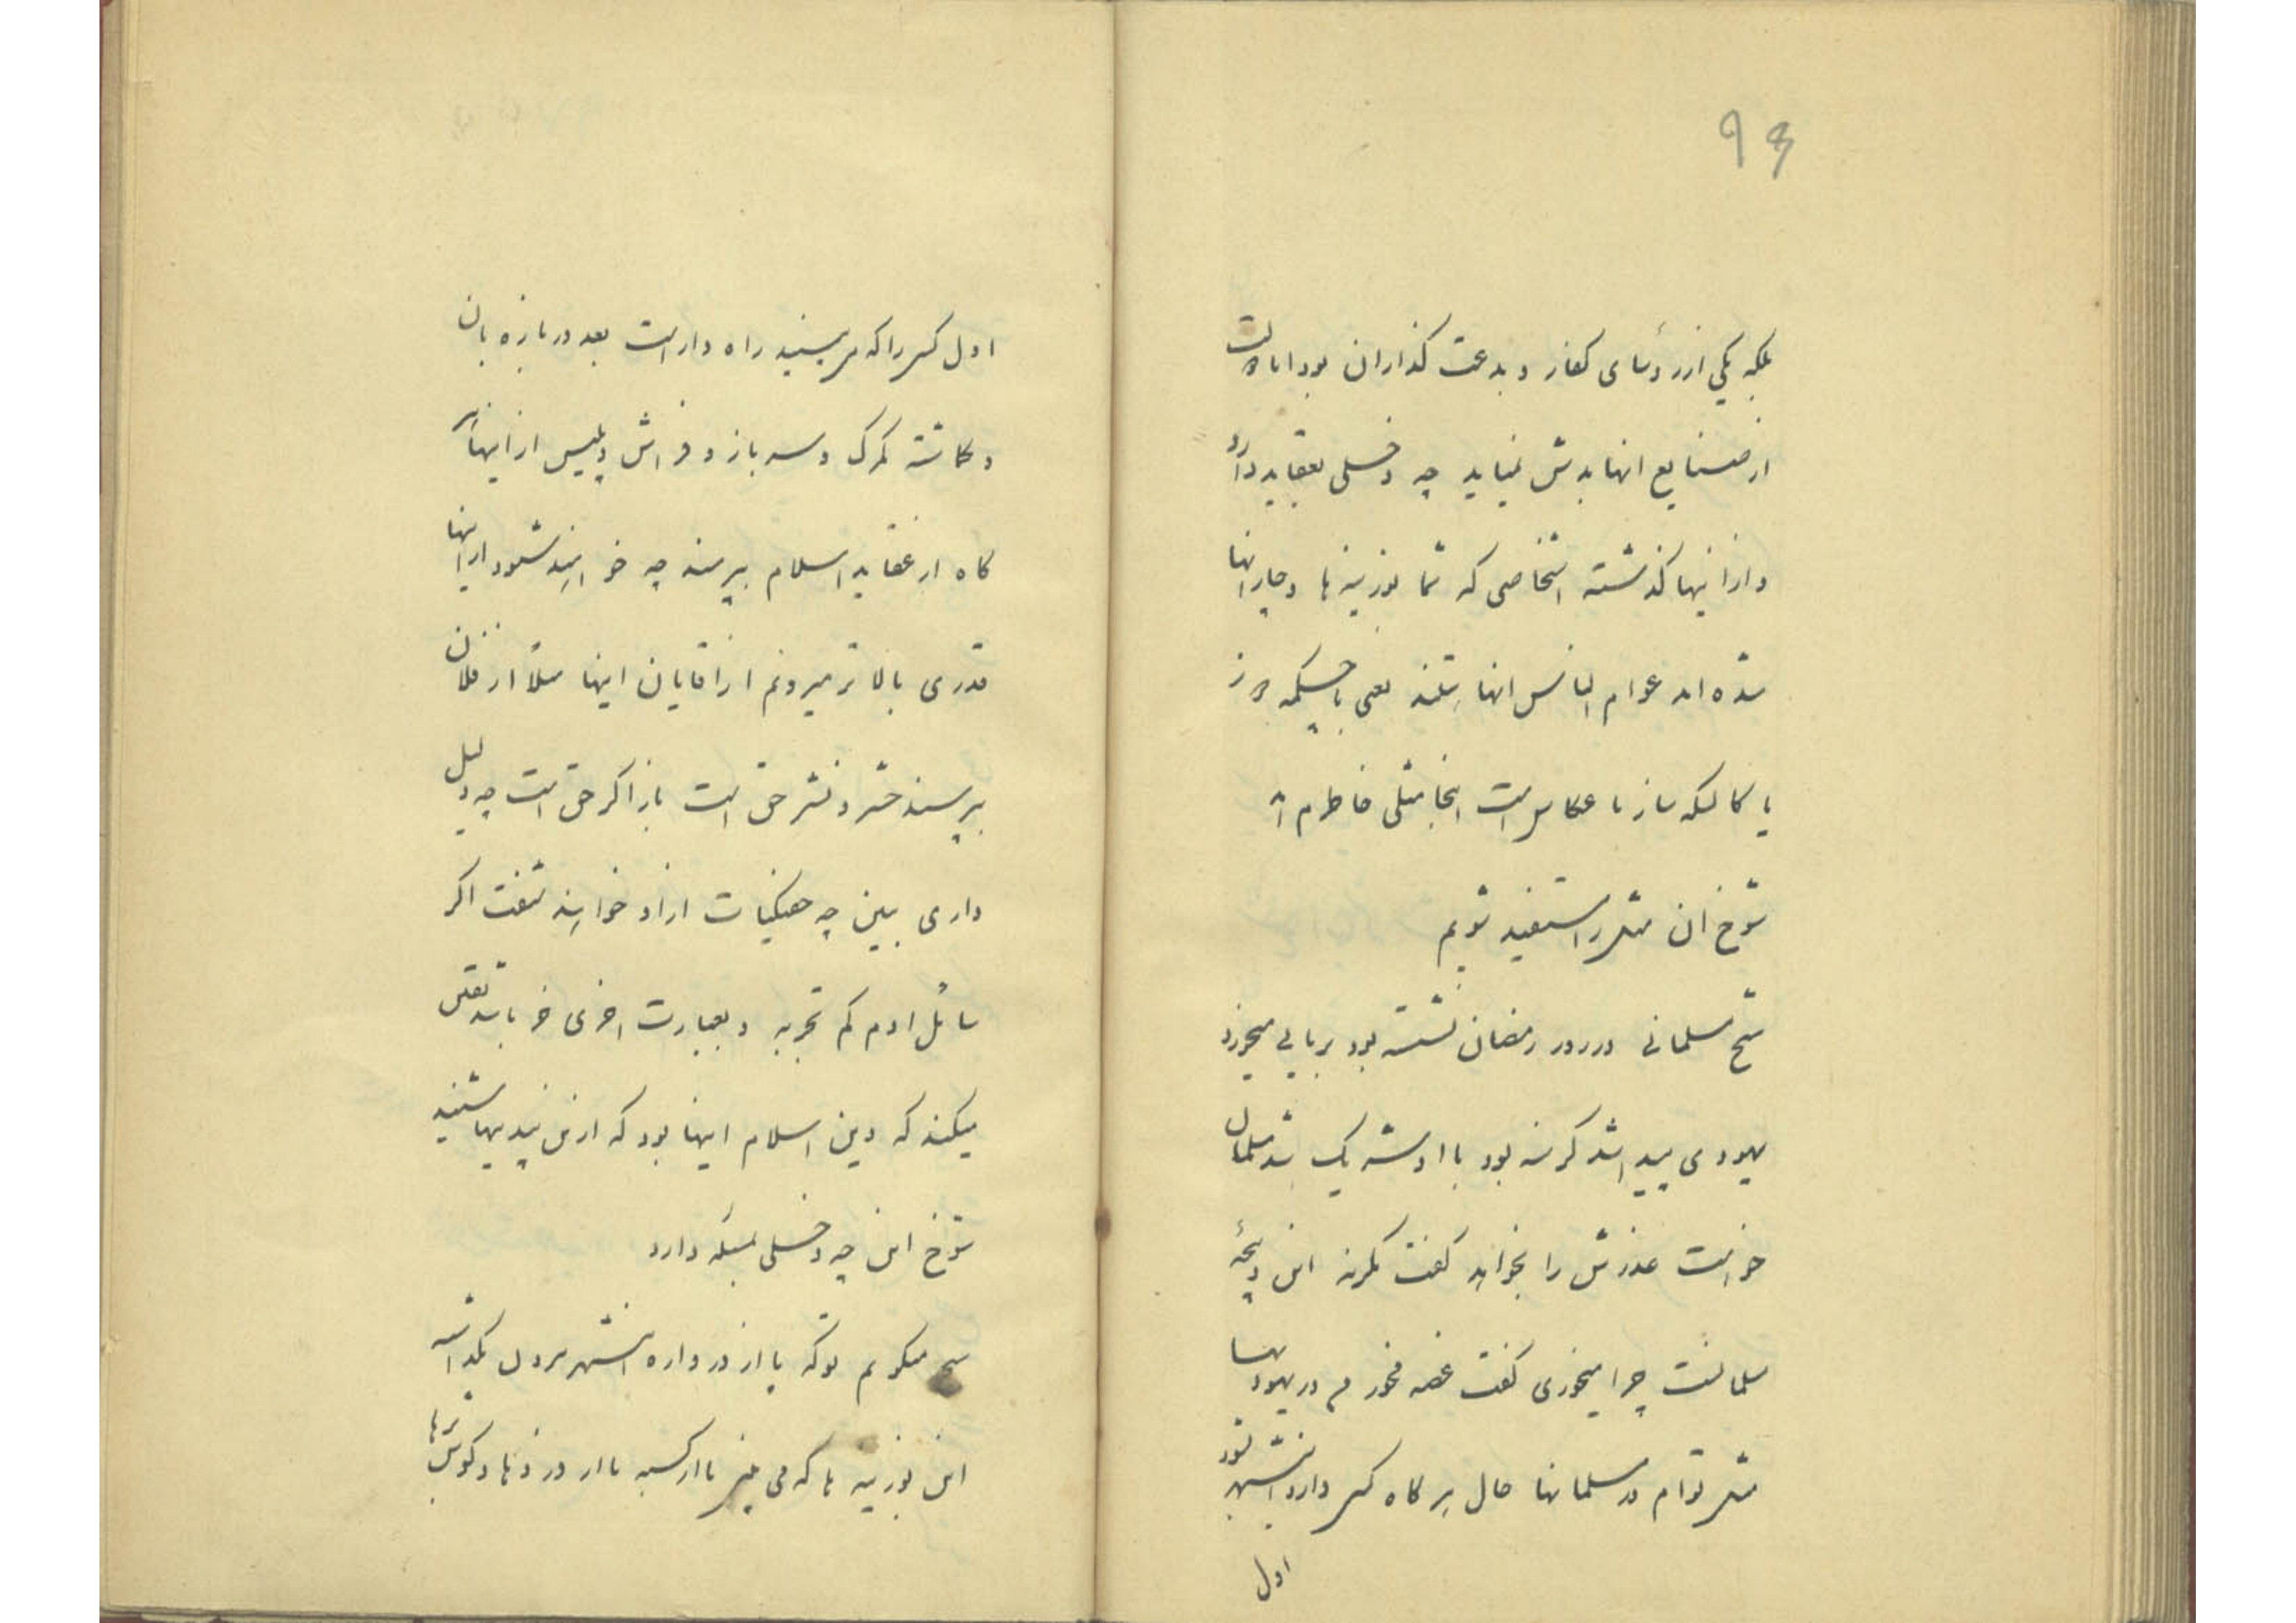 ۹۴
بلکه یکی از رؤسای کفار و بدعت گذاران بود اما
از صنایع انها بدش نمیاید چه دخلی بعقاید دارد
و از اینها گذشته اشخاصی که شما بوزینه ها دچار انها
شده اند عوام الناس انها هستند یعنی یا چکمه دوز
یا کالسکه ساز یا عکاس است اینجا مثلی خاطرم
شوخ ان مثل را مستفید شویم
شیخ مسلمانی در روز رمضان نشسته بود بریانی میخورد
یهودی پیدا شد گرسنه بود با او شریک شد مسلمان
خواست عذرش را بخواهد گفت این ذبیحه
مسلمانست چرا میخوری گفت غصه مخور من در یهودیها
مثل توام در مسلمانها حال هر گاه کسی وارد این شهر شود
اول
اول کسی را که می بیند راه دار است بعد دروازه بان
و گماشته گمرک و سرباز و فراش و پلیس از اینها هر
گاه از عقاید اسلام بپرسند چه خواهند شنود از اینها
قدری بالاتر میرویم از اقایان اینها مثلاً از فلان خان
بپرسند حشر و نشر حق است یا نه اگر حق است چه دلیل
داری ببین چه از او خواهند شنفت اگر
سائل ادم کم تجربه و بعبارت اخری خر باشد یقین
میکند که دین اسلام اینها بود که از این بیدینها شنید
شوخ این چه دخلی بمسئله دارد
شیخ میگویم تو که پا از دروازه این شهر بیرون نگذاشته
این بوزینه ها که می بینی یا از کسبه یا از دزدها و گوش برها